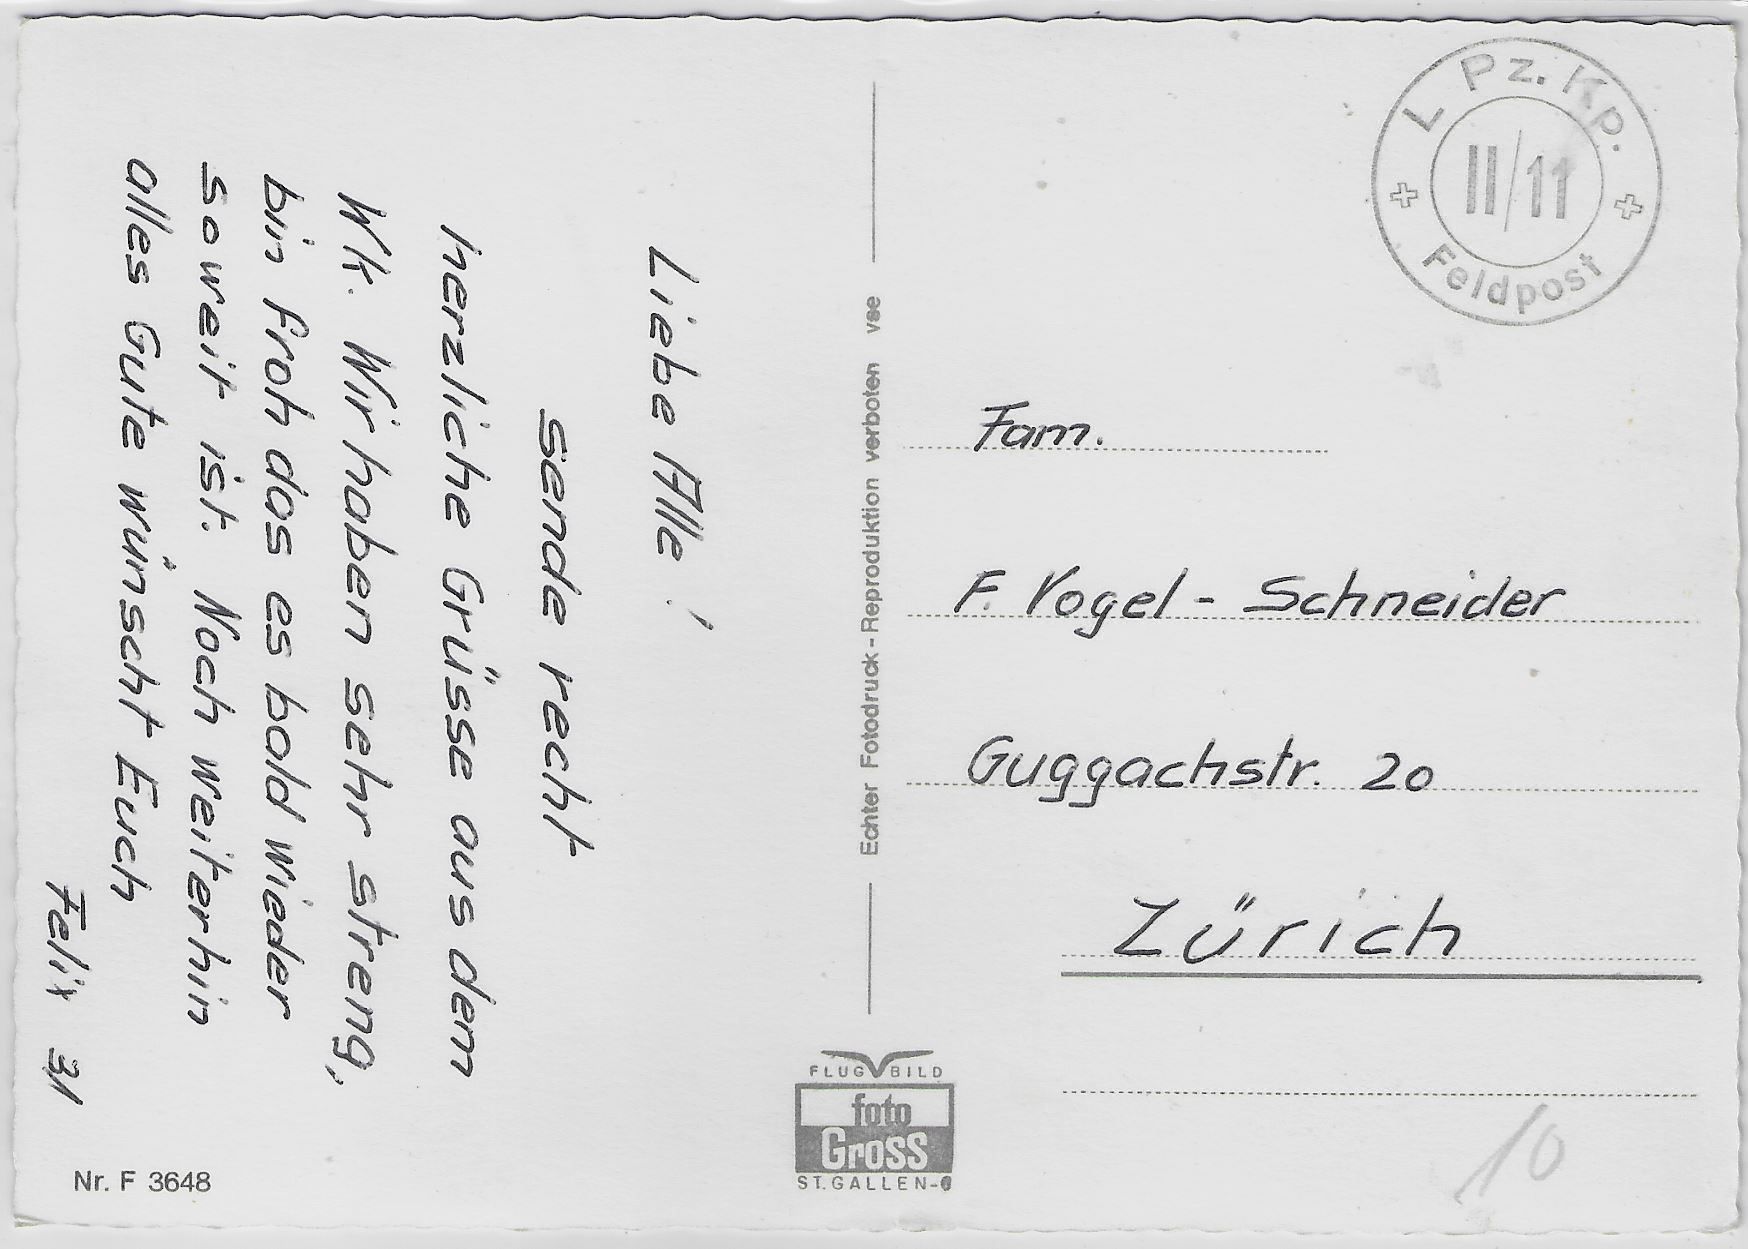 Liebe Alle!
Sende recht
herzliche Grüsse aus dem
Wk. Wir haben sehr streng,
bin froh das es bald wieder
soweit ist. Noch weiterhin
alles Gute wünscht Euch
Felix
Nr. F 3648
Echter Fotodruck - Reproduktion verboten vse
FLUG BILD
foto
Gross
ST. GALLEN
L Pz. Kp.
II/11
Feldpost
Fam.
F. Vogel - Schneider
Guggachstr. 20
Zürich
10